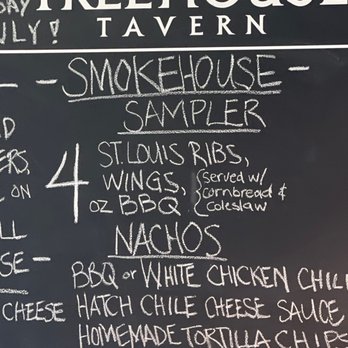 TREEHOUSE
TAVERN
DAY
JULY!
- SMOKEHOUSE -
SAMPLER
4 ST. LOUIS RIBS,
WINGS, {Served w/
OZ BBQ. cornbread &
coleslaw
ON
NACHOS
BBQ or WHITE CHICKEN CHILI
CHEESE HATCH CHILE CHEESE SAUCE
HOMEMADE TORTILLA CHIPS